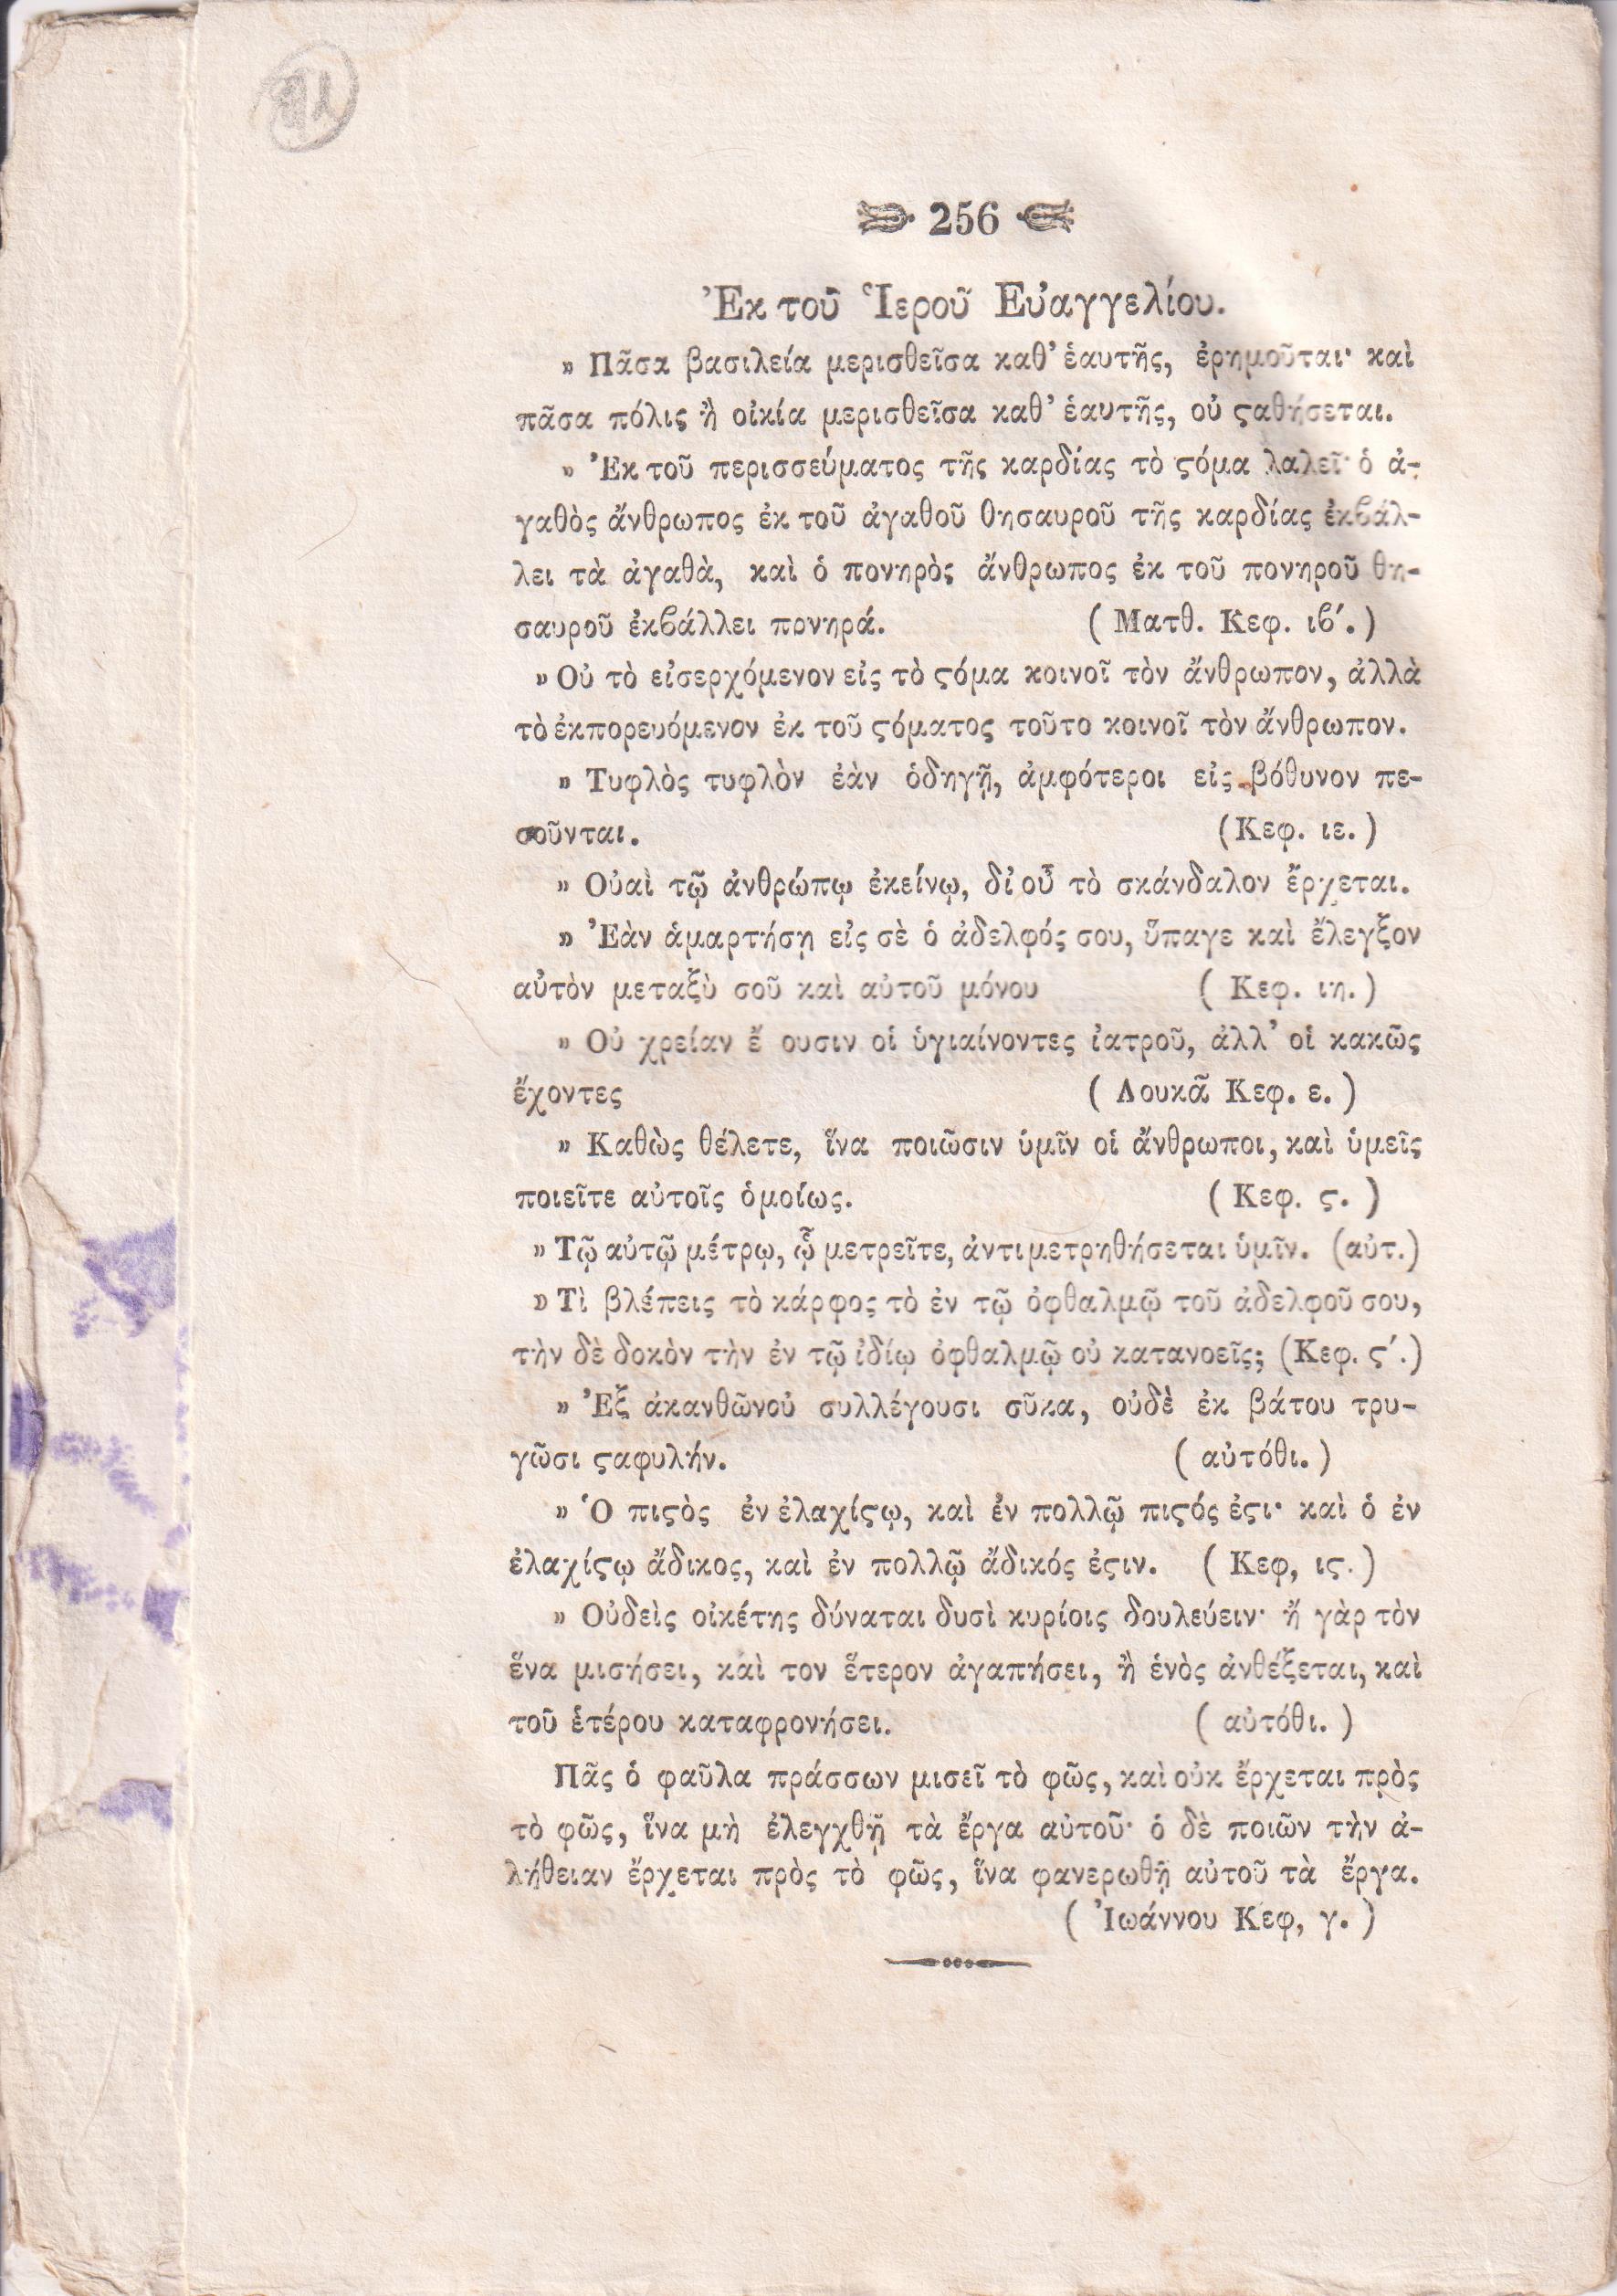 256
Ἐκ τοῦ Ἱεροῦ Εὐαγγελίου.
» Πᾶσα βασιλεία μερισθεῖσα καθ' ἑαυτῆς, ἐρημοῦται· καὶ
πᾶσα πόλις ἢ οἰκία μερισθεῖσα καθ' ἑαυτῆς, οὐ ϛαθήσεται.
» Ἐκ τοῦ περισσεύματος τῆς καρδίας τὸ ϛόμα λαλεῖ· ὁ ἀ-
γαθὸς ἄνθρωπος ἐκ τοῦ ἀγαθοῦ θησαυροῦ τῆς καρδίας ἐκϐάλ-
λει τὰ ἀγαθὰ, καὶ ὁ πονηρὸς ἄνθρωπος ἐκ τοῦ πονηροῦ θη-
σαυροῦ ἐκϐάλλει πονηρά. ( Ματθ. Κεφ. ιϐ'. )
» Οὐ τὸ εἰσερχόμενον εἰς τὸ ϛόμα κοινοῖ τὸν ἄνθρωπον, ἀλλὰ
τὸ ἐκπορευόμενον ἐκ τοῦ ϛόματος τοῦτο κοινοῖ τὸν ἄνθρωπον.
» Τυφλὸς τυφλὸν ἐὰν ὁδηγῇ, ἀμφότεροι εἰς βόθυνον πε-
σοῦνται. (Κεφ. ιε. )
» Οὐαὶ τῷ ἀνθρώπῳ ἐκείνῳ, δι' οὗ τὸ σκάνδαλον ἔρχεται.
» Ἐὰν ἁμαρτήσῃ εἰς σὲ ὁ ἀδελφός σου, ὕπαγε καὶ ἔλεγξον
αὐτὸν μεταξὺ σοῦ καὶ αὐτοῦ μόνου ( Κεφ. ιη. )
» Οὐ χρείαν ἔ ουσιν οἱ ὑγιαίνοντες ἰατροῦ, ἀλλ' οἱ κακῶς
ἔχοντες ( Λουκᾶ Κεφ. ε. )
» Καθὼς θέλετε, ἵνα ποιῶσιν ὑμῖν οἱ ἄνθρωποι, καὶ ὑμεῖς
ποιεῖτε αὐτοῖς ὁμοίως. ( Κεφ. ϛ. )
» Τῷ αὐτῷ μέτρῳ, ᾧ μετρεῖτε, ἀντιμετρηθήσεται ὑμῖν. (αὐτ.)
» Τὶ βλέπεις τὸ κάρφος τὸ ἐν τῷ ὀφθαλμῷ τοῦ ἀδελφοῦ σου,
τὴν δὲ δοκὸν τὴν ἐν τῷ ἰδίῳ ὀφθαλμῷ οὐ κατανοεῖς; (Κεφ. ϛ'.)
» Ἐξ ἀκανθῶνοὐ συλλέγουσι σῦκα, οὐδὲ ἐκ βάτου τρυ-
γῶσι ϛαφυλήν. ( αὐτόθι. )
» Ὁ πιϛὸς ἐν ἐλαχίϛῳ, καὶ ἐν πολλῷ πιϛός ἐϛι· καὶ ὁ ἐν
ἐλαχίϛῳ ἄδικος, καὶ ἐν πολλῷ ἄδικός ἐϛιν. ( Κεφ, ιϛ. )
» Οὐδεὶς οἰκέτης δύναται δυσὶ κυρίοις δουλεύειν· ἤ γὰρ τὸν
ἕνα μισήσει, καὶ τον ἕτερον ἀγαπήσει, ἢ ἑνὸς ἀνθέξεται, καὶ
τοῦ ἑτέρου καταφρονήσει. ( αὐτόθι. )
Πᾶς ὁ φαῦλα πράσσων μισεῖ τὸ φῶς, καὶ οὐκ ἔρχεται πρὸς
τὸ φῶς, ἵνα μὴ ἐλεγχθῇ τὰ ἔργα αὐτοῦ· ὁ δὲ ποιῶν τὴν ἀ-
λήθειαν ἔρχεται πρὸς τὸ φῶς, ἵνα φανερωθῇ αὐτοῦ τὰ ἔργα.
( Ἰωάννου Κεφ, γ. )